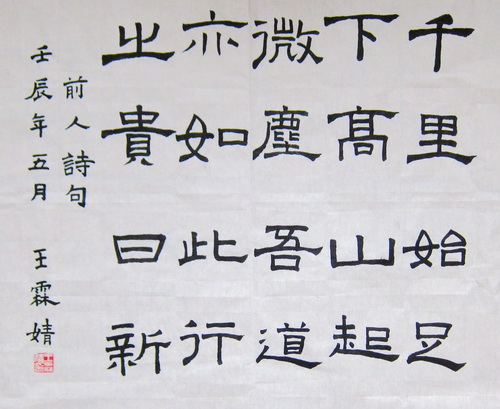 千里始足
下髙山起
微塵吾道
亦如此行
之貴日新
前人詩句
壬辰年五月 王霖婧